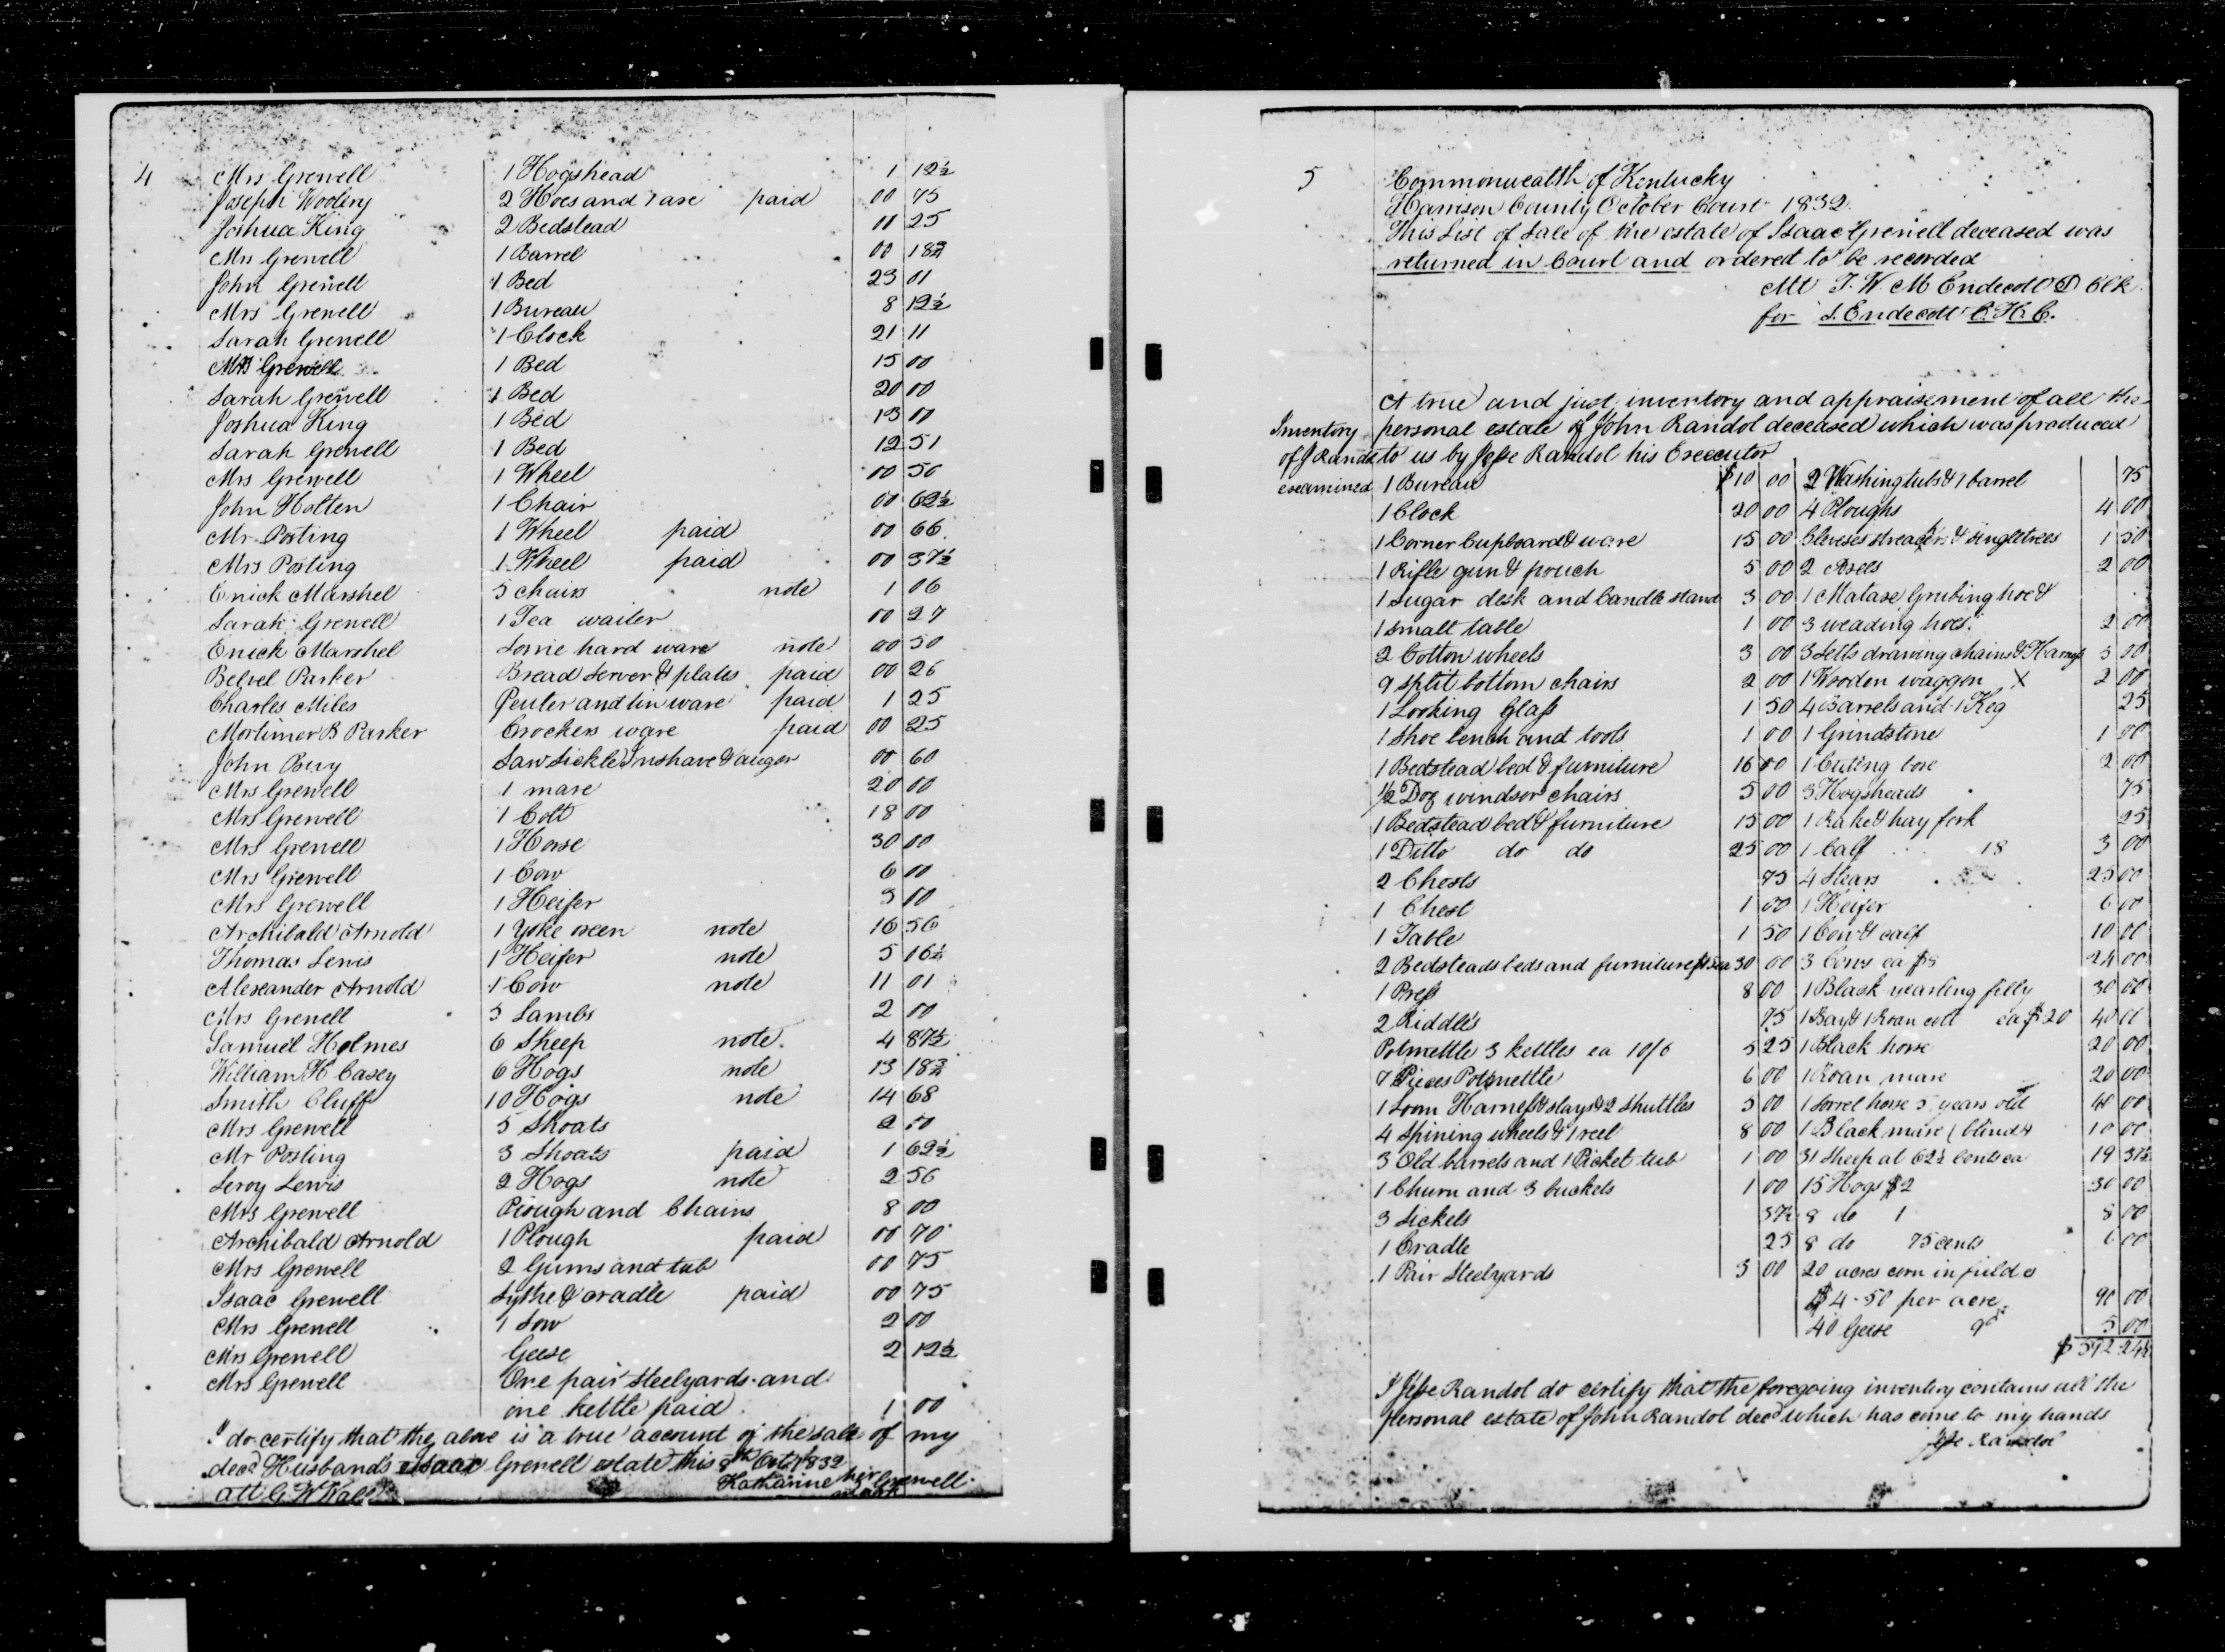 4
Mrs Grewell 1 Hogshead 1 12½
Joseph Wooliny 2 Hoes and 1 axe paid 00 75
Joshua King 2 Bedstead 11 25
Mrs Grewell 1 Barrel 00 18¾
John Grewell 1 Bed 23 01
Mrs Grewell 1 Bureau 8 12½
Sarah Grewell 1 Clock 21 11
Mrs Grewell 1 Bed 15 00
Sarah Grewell 1 Bed 20 00
Joshua King 1 Bed 13 00
Sarah Grewell 1 Bed 12 51
Mrs Grewell 1 Wheel 00 50
John Holten 1 Chair 00 62½
Mr Posting 1 Wheel paid 00 66
Mrs Posting 1 Wheel paid 00 37½
Enick Marshel 5 chairs note 1 06
Sarah Grewell 1 Tea waiter 00 27
Enick Marshel Some hard ware note 00 50
Parker Bread Server & plates paid 00 26
Charles Miles Peuter and tin ware paid 1 25
Mortimer B Parker Crockery ware paid 00 25
John Bery Saw Sickle Inshave & auger 00 60
Mrs Grewell 1 mare 20 00
Mrs Grewell 1 Colt 18 00
Mrs Grewell 1 Horse 30 00
Mrs Grewell 1 Cow 6 00
Mrs Grewell 1 Heifer 3 00
Archibald Arnold 1 Yoke oxen note 16 56
Thomas Lewis 1 Heifer note 5 16½
Alexander Arnold 1 Cow note 11 01
Mrs Grewell 3 Lambs 2 00
Samuel Holmes 6 Sheep note 4 87½
William H Casey 6 Hogs note 13 18¾
Smith Cluff 10 Hogs note 14 68
Mrs Grewell 5 Shoats 2 50
Mr Posting 3 Shoats paid 1 62½
Leroy Lewis 2 Hogs note 2 56
Mrs Grewell Plough and Chains 8 00
Archibald Arnold 1 Plough paid 00 70
Mrs Grewell 2 Gums and tub 00 75
Isaac Grewell Sythe & cradle paid 00 75
Mrs Grewell 1 Sow 2 00
Mrs Grewell Geese 2 12½
Mrs Grewell One pair Steelyards and
one kettle paid 1 00
I do certify that the above is a true account of the sale of my
decd Husbands Isaac Grewell estate this 8th Octr 1832
att G W Katharine her Grewell
mark
5
Commonwealth of Kentucky
Harrison County October Court 1832
This List of Sale of the estate of Isaac Grewell deceased was
returned in Court and ordered to be recorded
Att T. W. M Endecott D Clk
for J. Endecott C. H. C.
A true and just inventory and appraisement of all the
Inventory personal estate of John Randol deceased which was produced
of J Randol to us by Jesse Randol his Executor
examined 1 Bureau $10 00 2 Washing tubs & 1 barrel 75
1 Clock 20 00 4 Ploughs 4 00
1 Corner Cupboard & ware 15 00 Cleveses streacher & singletrees 1 50
1 Rifle gun & pouch 5 00 2 Axes 2 00
1 Sugar desk and Candle stand 3 00 1 Matase Grubing hoe &
1 small table 1 00 3 weading hoes 2 00
2 Cotton wheels 3 00 3 Setts drawing chains & Harness 5 00
9 Split bottom chairs 2 00 1 Wooden waggon X 2 00
1 Looking Glass 1 50 4 Barrels and 1 Keg 25
1 Shoe bench and tools 1 00 1 Grindstone 1 00
1 Bedstead bed & furniture 16 00 1 Cuting box 2 00
½ Doz windsor chairs 5 00 3 Hogsheads 75
1 Bedstead bed & furniture 15 00 1 Rake & hay fork 25
1 Ditto do do 25 00 1 Calf 18 3 00
2 Chests 75 4 Stears 25 00
1 Chest 1 00 1 Heifer 6 00
1 Table 1 50 1 Cow & calf 10 00
2 Bedsteads beds and furniture $15 ea 30 00 3 Cows ea $8 24 00
1 Press 8 00 1 Black yearling filly 30 00
2 Riddles 75 1 Bay & 1 Roan colt ea $20 40 00
Potmettle 3 kettles ea 10/6 5 25 1 Black horse 20 00
7 Pieces Potmettle 6 00 1 Roan mare 20 00
1 Loom Harness & slays & 2 Shuttles 5 00 1 Sorrel horse 5 years old 40 00
4 Spining wheels & 1 reel 8 00 1 Black mare (blind 10 00
3 Old barrels and 1 Picket tub 1 00 31 Sheep at 62½ Cents ea 19 37½
1 Churn and 3 buckets 1 00 15 Hogs $2 30 00
3 Sickels 37½ 8 do 1 8 00
1 Cradle 25 8 do 75 cents 6 00
1 Pair Steelyards 3 00 20 acres corn in field @
$4-50 per acre 90 00
40 Geese 9d 5 00
$592 24½
I Jesse Randol do certify that the foregoing inventory contains all the
personal estate of John Randol decd which has come to my hands
Jesse Randol